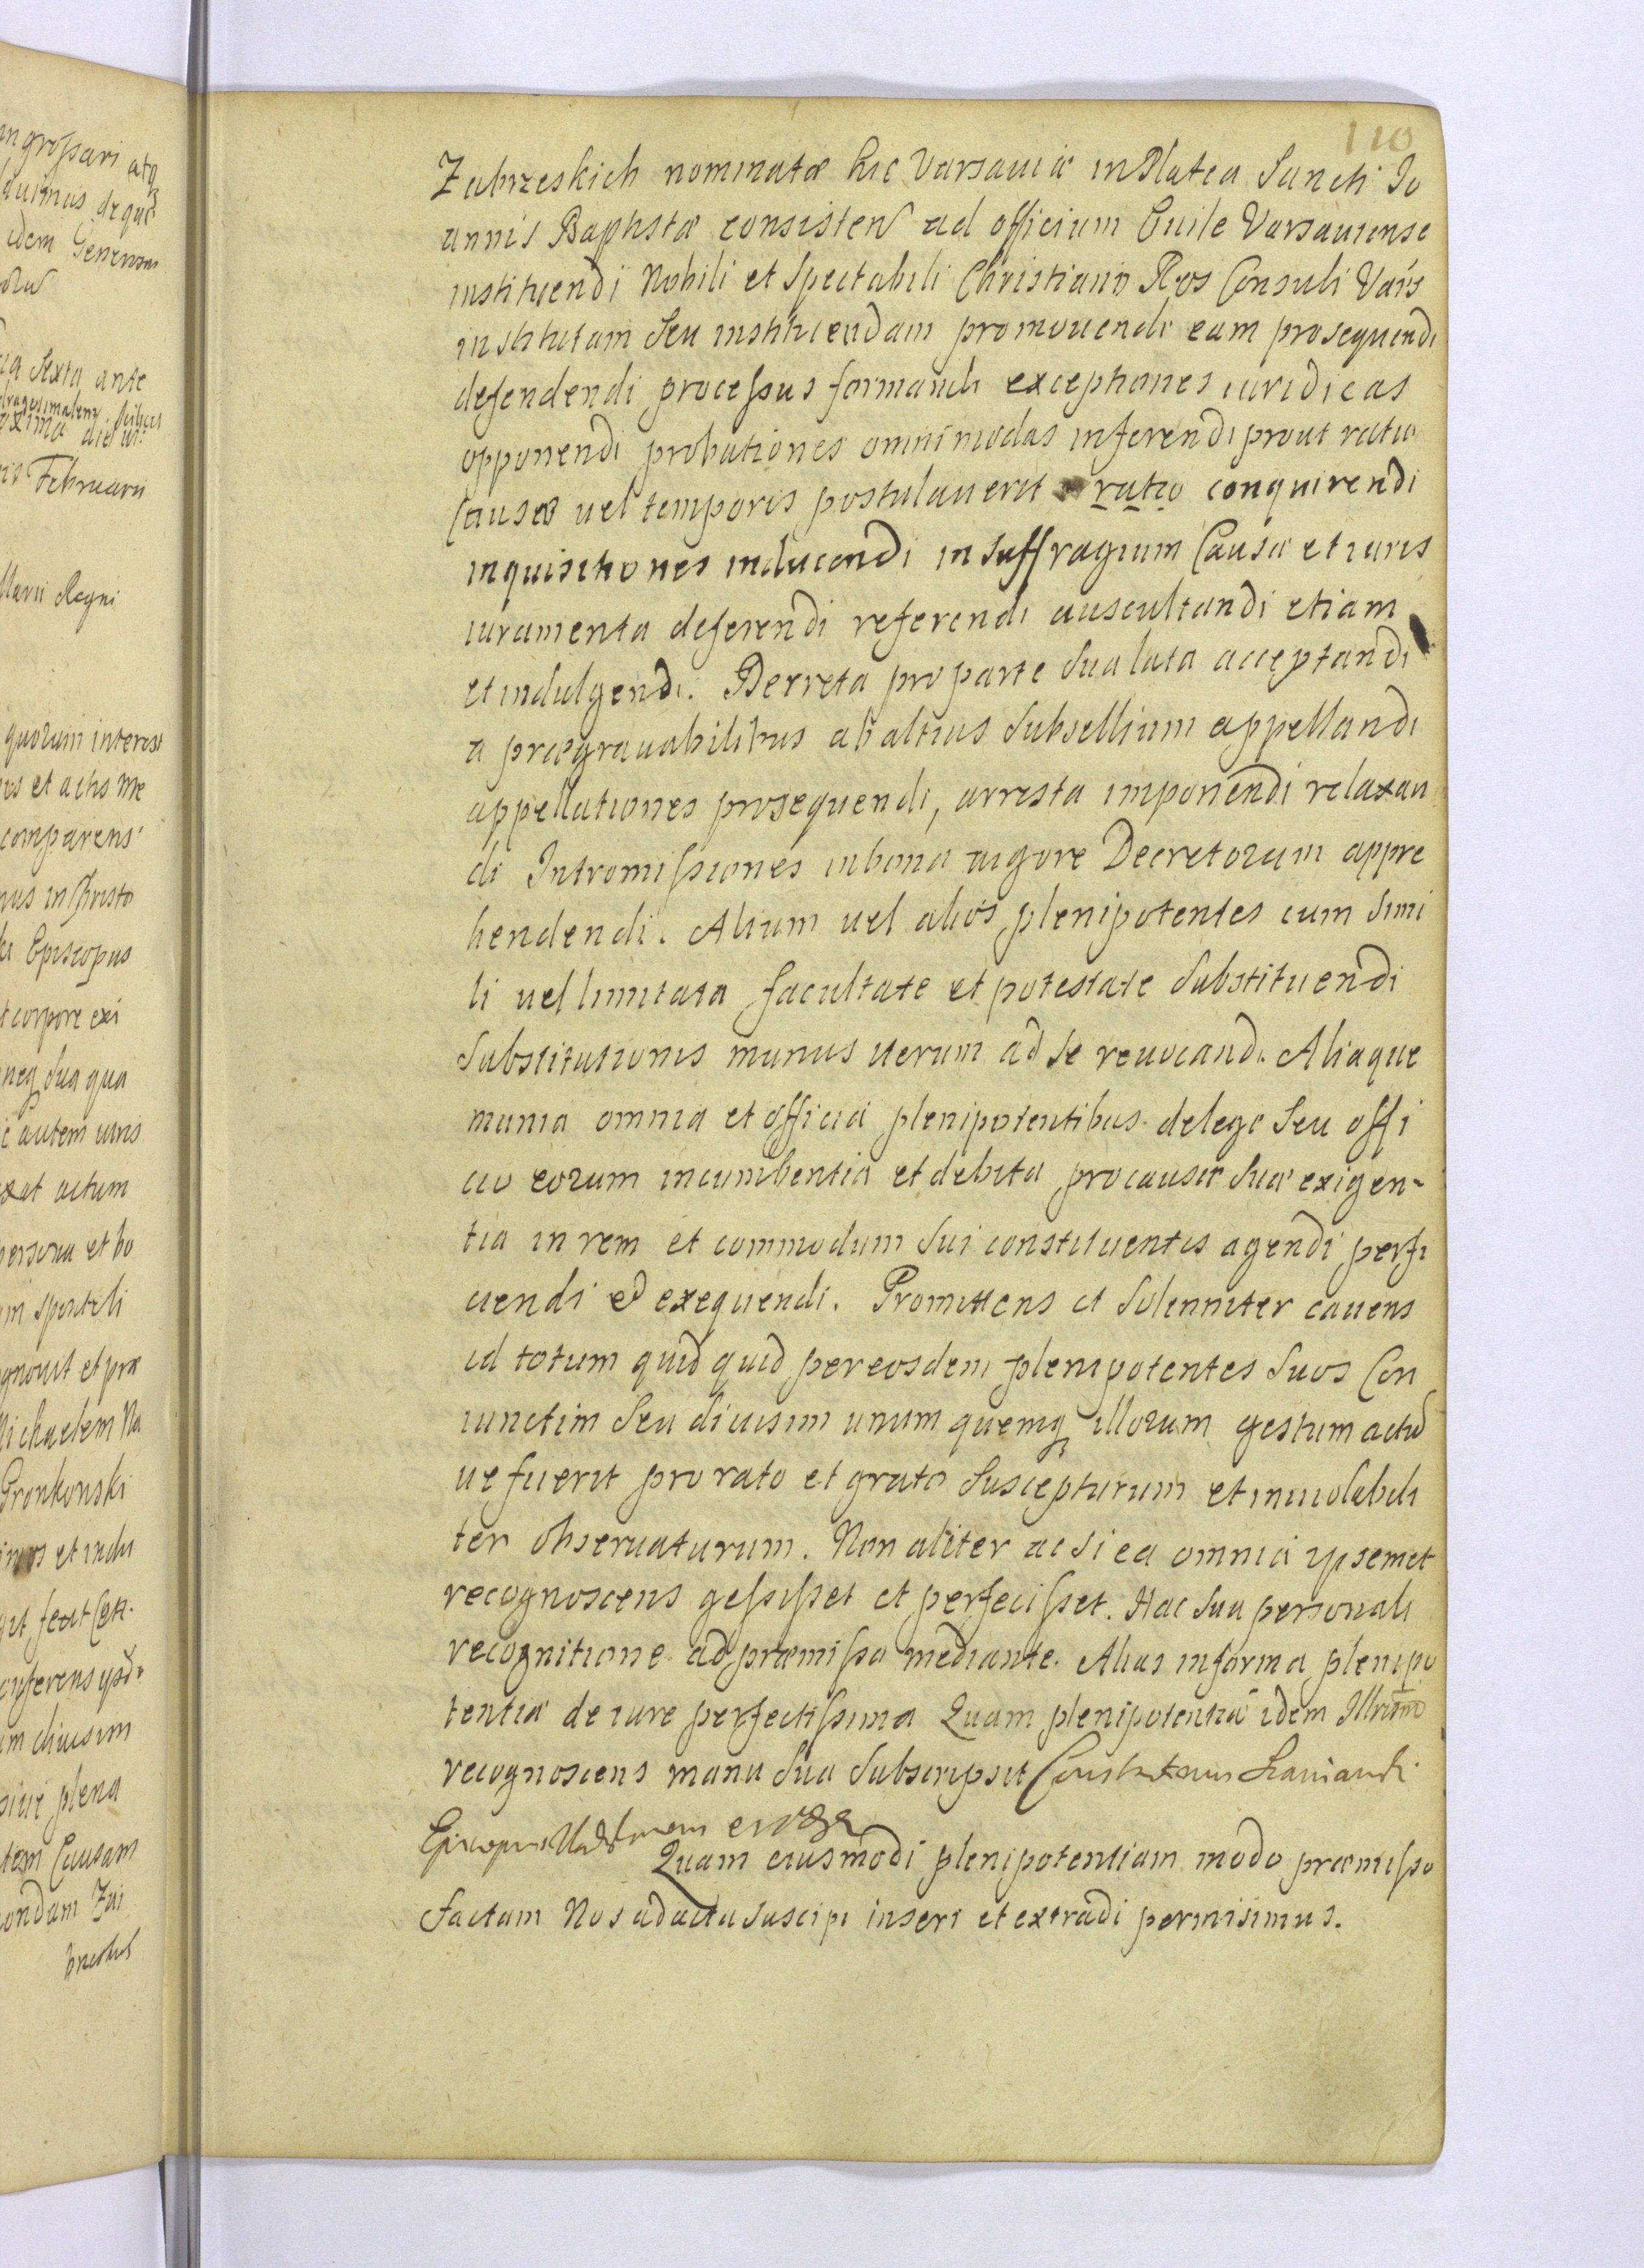 110
Zabrzeskich nominatæ hic Varsaviæ in Platea Sancti Io
annis Baptistæ consisten ad officium Ciuile Varsauiense
instituendi Nobili et Spectabili Christiano Ros Consuli Vars
institutam Seu instituendam promouendi eam prosequendi
defendendi processus formandi exceptiones iuridicas
opponendi probationes omnimodas inferendi prout ratio
Causæ uel temporis postulauerit ratio conquirendi
inquisitiones inducendi in Suffragium Causæ et iuris
iuramenta deferendi referendi auscultandi etiam
et indulgendi. Decreta pro parte Sua lata acceptandi
a prægrauabilibus ab altius Subsellium appellandi
appellationes prosequendi, arresta imponendi relaxan
di Intromissiones in bona uigore Decretorum appre
hendendi. Alium uel alios plenipotentes cum Simi
li uel limitata facultate et potestate Substituendi
Substitutionis munus uerum ad Se reuocandi. Aliaque
munia omnia et officia plenipotentibus de lege Seu offi
cio eorum incumbentia et debita pro causæ Suæ exigen-
tia in rem et commodum Sui constituentis agendi perfi
ciendi et exequendi. Promittens et Solenniter cauens
id totum quid quid per eosdem plenipotentes Suos Con
iunctim Seu diuisim unum quemq illorum gestum actu
ue fuerit pro rato et grato Suscepturum et inuiolabili
ter obseruaturum. Non aliter ac Si ea omnia ipsemet
recognoscens gessisset et perfecisset. Hac Sua personali
recognitione ad præmissa mediante. Alias in forma plenipo
tentiæ de iure perfectissima Quam plenipotentia idem Illrimo
recognoscens manu Sua Subscripsit
Quam eiusmodi plenipotentiam modo præmisso
factam Nos ad acta suscipi inseri et extradi permisimus.